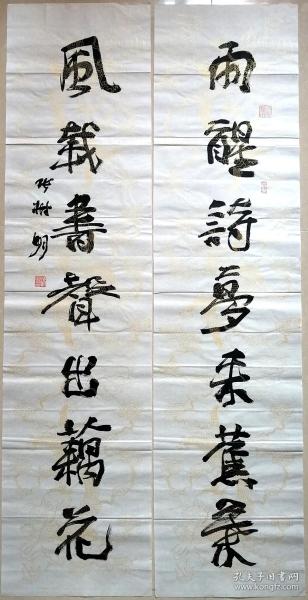 雨醒詩夢来蕉葉
風載書聲出藕花
孔夫子旧书网
www.kongfz.com